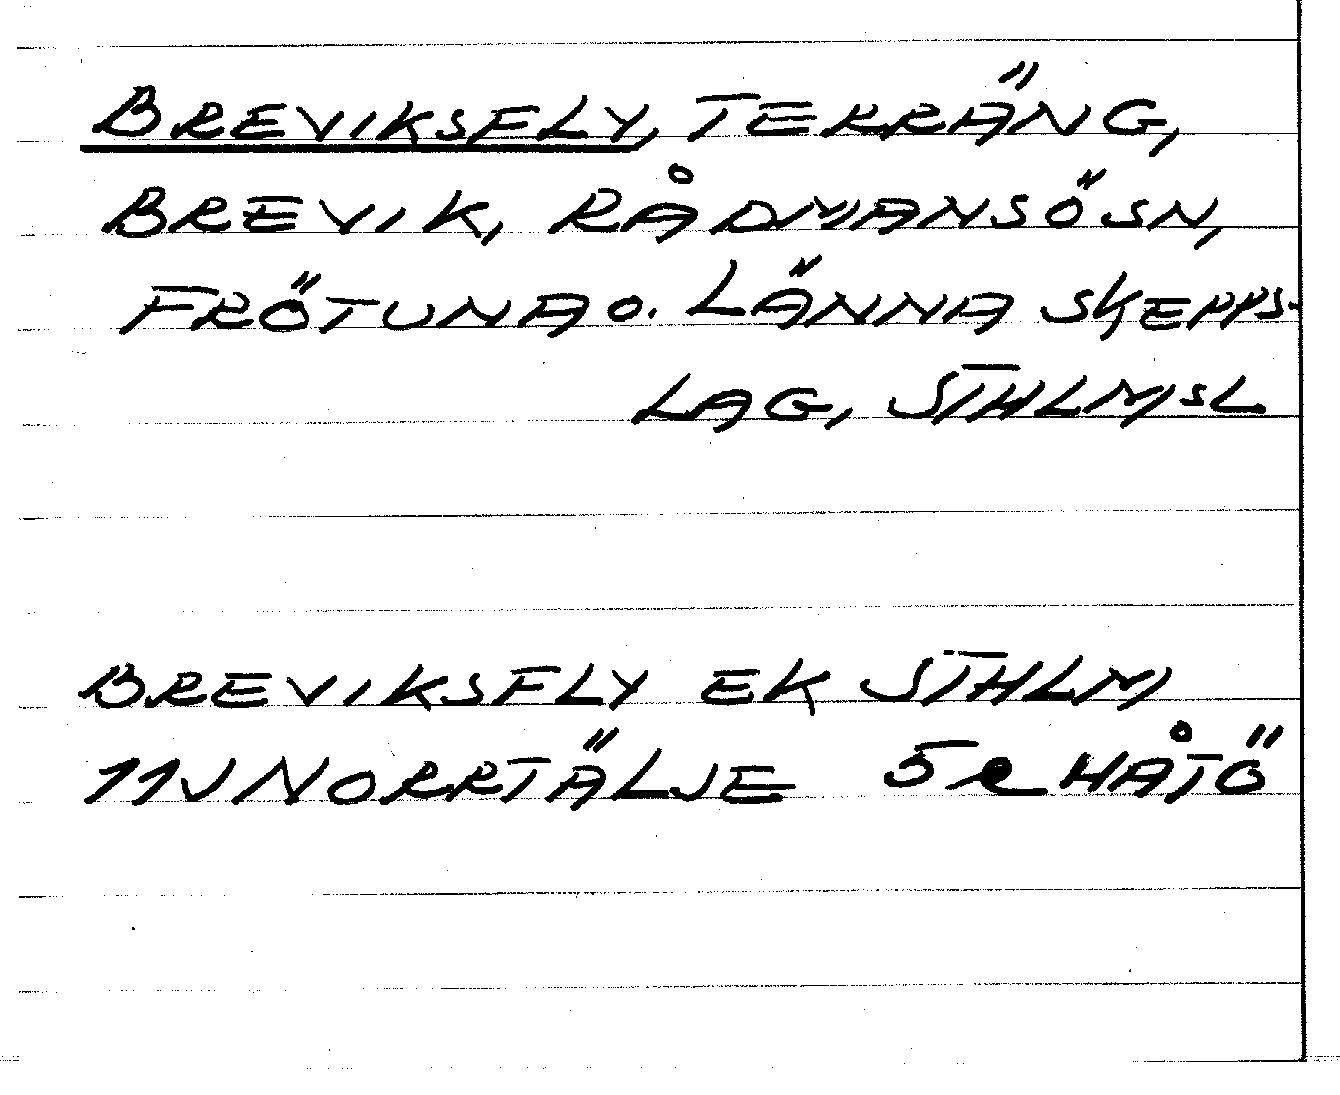 BREVIKSFLY, TERRÄNG,
BREVIK, RÅDMANSÖSN,
FRÖTUNA O. LÄNNA SKEPPS-
LAG, STHLMSL
BREVIKSFLY EK STHLM
11J NORRTÄLJE 5e HATÖ